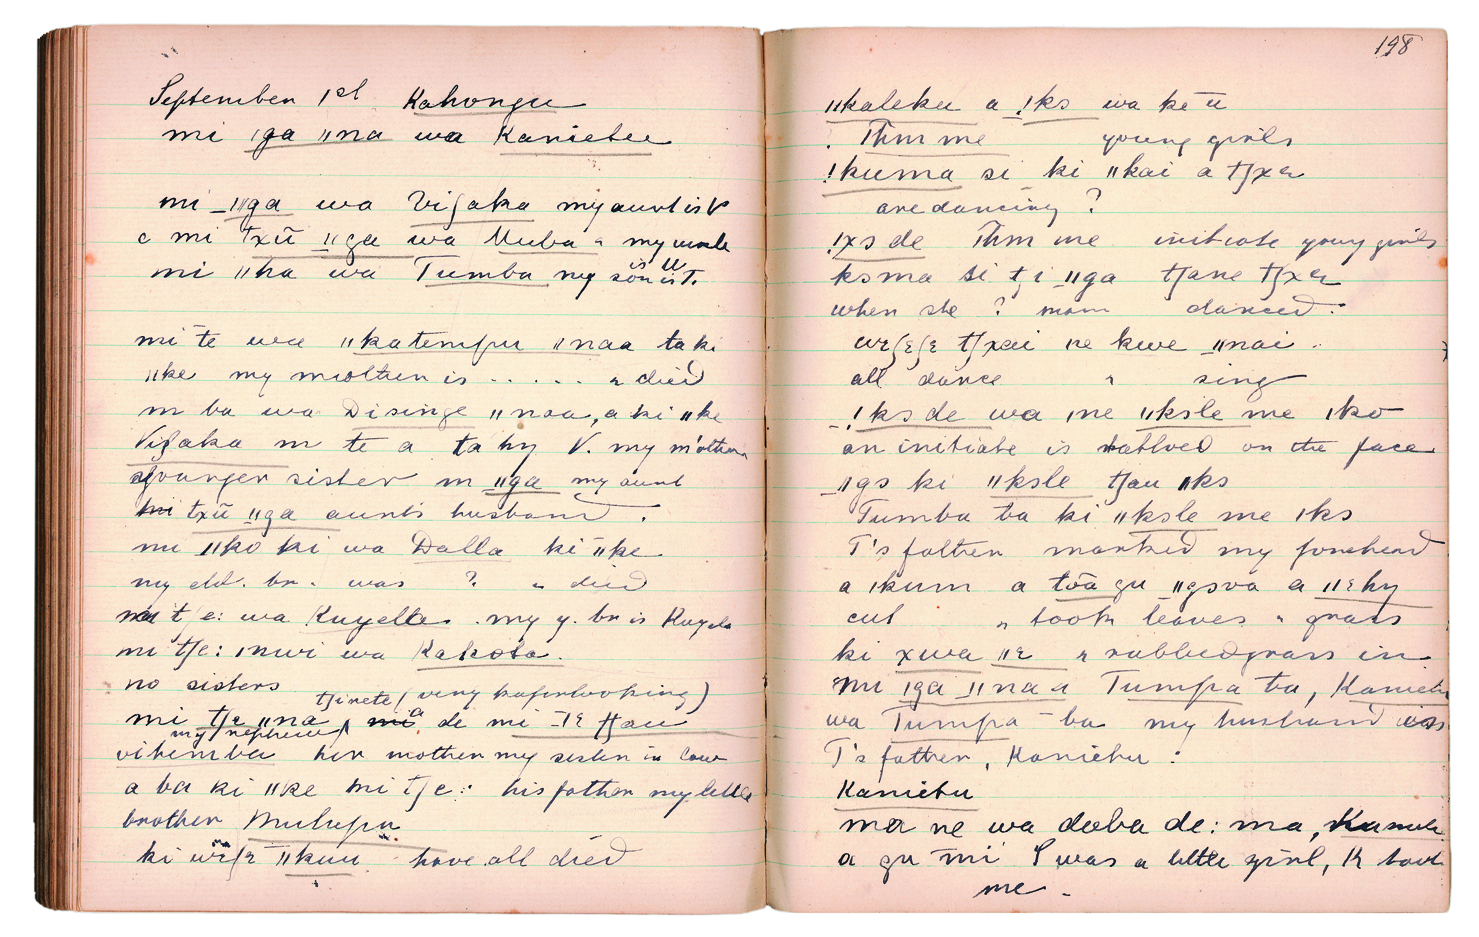 September 1st Kahongu
mi ǀga ǁna wa Kanietu
mi ǁga wa Viʃaka my aunt is V
mi txū ǁga wa Muba my uncle
mi ǁha wa Tumba my son is T.
mi te wa ǁkatempu ǁnaa ta ki
ǁke my mother is ..... died
m ba wa Disinge ǁnaa, a ki ǁke
Viʃaka m te a ta hy V. my mothers
younger sister m ǁga my aunt
mi txū ǁga aunts husband.
mi ǁko ki wa Dalla ki ǁke
my eld. br. was ? " died
mi tʃe: wa Kuyella. my y. br is Kuyela
mi tʃe: ǀnwi wa Kakoba.
no sisters
tʃinete (very kaferlooking)
mi tʃɛ ǁna, de mi ꞮƐ tʃau
my nephew
vihemba her mother my sister in law
a ba ki ǁke mi tʃe: his father my little
brother Muhupu
ki wɛʃɛ ǁkuu have all died
198
ǁkaleku a ǃks wa ke ū
Thm me young girls
ǃkuma si ki ǁkai a tʃxɛ
are dancing ?
ǃxs de Thm me initiate young girls
ksma si tʃi ǁga tʃane tʃxɛ
when she ? mam danced.
wɛʃɛʃɛ tʃxai ne kwe ǁnai.
all dance sing
ǃks de wa ǀne ǁksle me ǀko
an initiate is tattved on the face
ǁgs ki ǁksle tʃau ǁks
Tumba ba ki ǁksle me ǀks
T's father marked my forehead
a ǀkum a tōā gu ǁgsva a ǁɛhy
cut " took leaves " grass
ki xwa ǁɛ rubbed grass in
mi ǀga ǁna a Tumpa ba, Kanietu
wa Tumpa ba my husband was
T's father, Kanietu:
Kanietu
ma ne wa daba de: ma, Kanietu
a gu mi I was a little girl, K took
me.